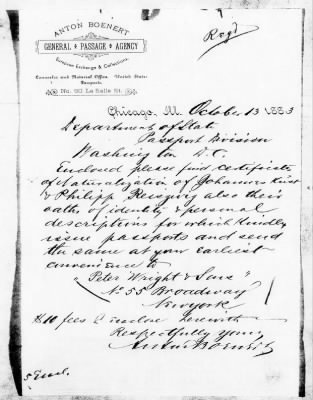 ANTON BOENERT
GENERAL PASSAGE AGENCY
European Exchange & Collections.
Consular and Notarial Office. United States
Passports.
No. 90 La Salle St.
Regd
Chicago, Ill. October 13 1883
Department of State
Passport Division
Washington D.C.
Enclosed please find certificates
of Naturalization of Johannes
& Philipp also their
oaths of identity & personal
descriptions for which kindly
issue passports and send
the same at your earliest
convenience to
"Peter Wright & Sons"
No 55 Broadway
New York
$10 fees I enclose herewith
Respectfully yours
Anton Boenert
5 Encl.